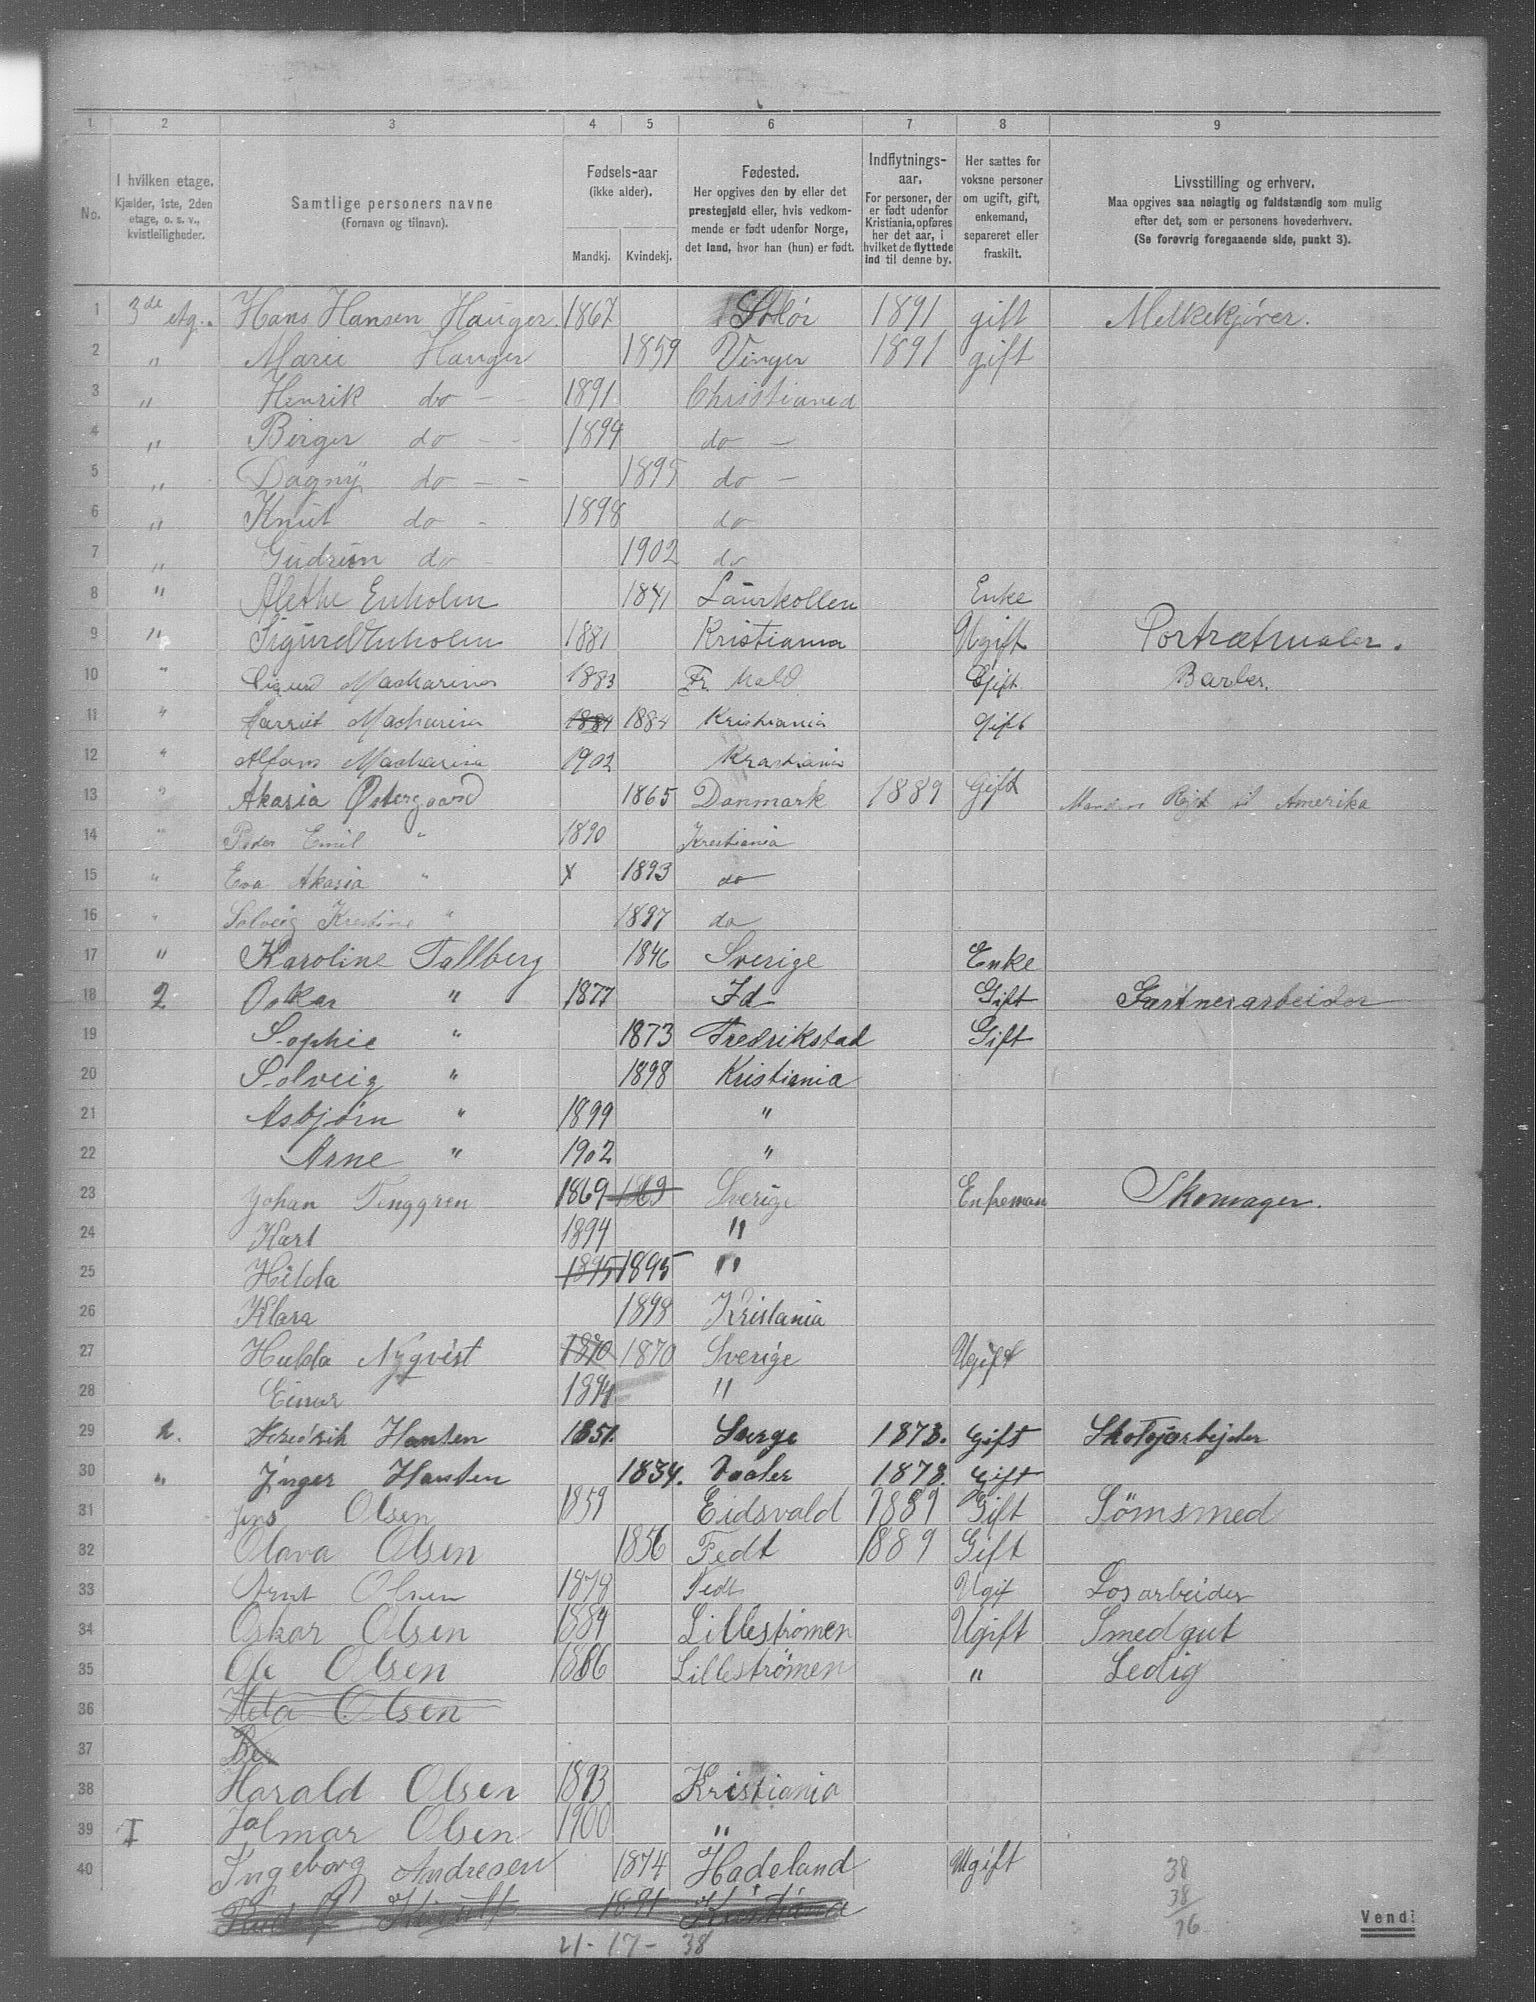 1 2 3 4 5 6 7 8 9
No.
I hvilken etage.
Kjælder, 1ste, 2den
etage, o. s. v.,
kvistleiligheder.
Samtlige personers navne
(Fornavn og tilnavn).
Fødsels-aar
(ikke alder).
Mandkj. Kvindekj.
Fødested.
Her opgives den by eller det
prestegjeld eller, hvis vedkom-
mende er født udenfor Norge,
det land, hvor han (hun) er født.
Indflytnings-
aar.
For personer, der
er født udenfor
Kristiania, opføres
her det aar, i
hvilket de flyttede
ind til denne by.
Her sættes for
voksne personer
om ugift, gift,
enkemand,
separeret eller
fraskilt.
Livsstilling og erhverv.
Maa opgives saa nøiagtig og fuldstændig som mulig
efter det, som er personens hovederhverv.
(Se forøvrig foregaaende side, punkt 3).
1 3de etg. Hans Hansen Hauger 1867 Solør 1891 gift Melkekjører.
2 " Marie Hauger 1859 Vinger 1891 gift
3 " Henrik do - - 1891 Christiania
4 " Birger do - - 1894 do -
5 " Dagny do - - 1895 do -
6 " Knut do - 1898 do
7 " Gudrun do - 1902 do
8 " Alethe Enholm 1841 Laurkollen Enke
9 " Sigurd Enholm 1881 Kristiania Ugift Portrætmaler.
10 " Sigurd 1883 Fr. hald Gift Barber.
11 " Harriet 1884 1884 Kristiania Gift
12 " Alfons 1902 Kristiania
13 " Akasia Østergaard 1865 Danmark 1889 Gift Manden Rejst til Amerika
14 " Peder Emil " 1890 Kristiania
15 " Eva Akasia " x 1893 do
16 " Solveig Kristine " 1897 do
17 " Karoline Tallberg 1846 Sverige Enke
18 2 Oskar " 1877 Id Gift Gartnerarbeider
19 Sophie " 1873 Fredrikstad Gift
20 Solveig " 1898 Kristiania
21 Asbjørn " 1899 "
22 Arne " 1902 "
23 Johan Tenggren 1869 1869 Sverige Enkeman Skomager.
24 Karl 1894 "
25 Hilda 1895 1895 "
26 Klara 1898 Kristania
27 Hulda Nyqvist 1870 1870 Sverige Ugift
28 Einar 1894 "
29 2. Fredrik Hansen 1851. Sverge 1878. Gift Skotøjarbejder
30 " Inger Hansen 1834. Vaaler 1878. Gift
31 Jens Olsen 1859 Eidsvold 1889 Gift Sömsmed
32 Olava Olsen 1856 Fedt 1889 Gift
33 Arnt Olsen 1878 Fedt Ugif Losarbeider
34 Oskar Olsen 1884 Lillestrømen Ugift Smedgut
35 Ole Olsen 1886 Lillestrømen " Ledig
36 Olsen
37
38 Harald Olsen 1893 Kristiania
39 I Hjalmar Olsen 1900 "
40 Ingeborg Andresen 1874 Hadeland Ugift 38
Rudolf 1891 Kristiania 38
76
Vend!
21 - 17 - 38